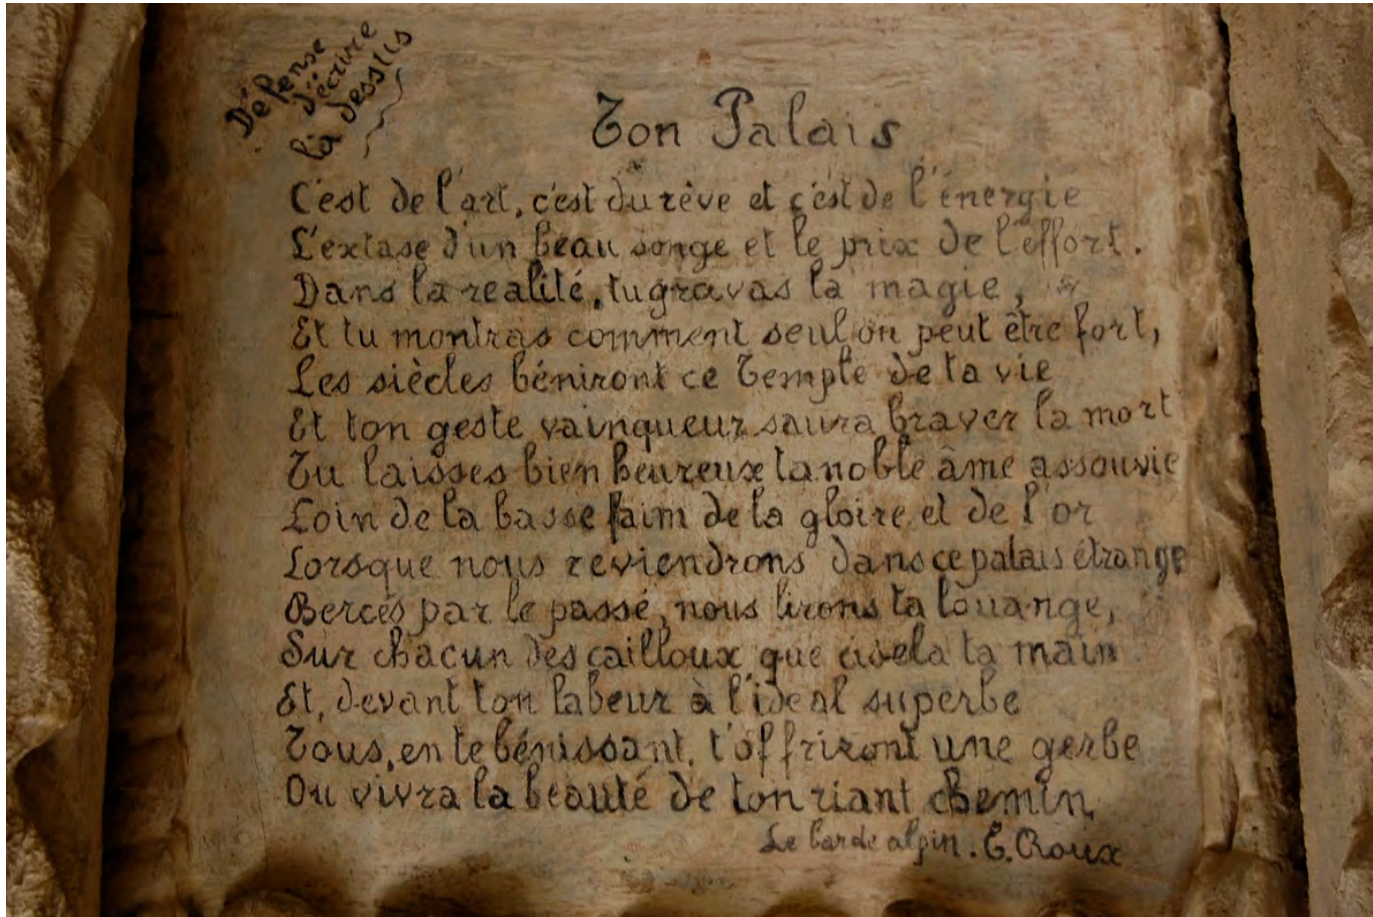 Défense
d'écrire
là dessus
Ton Palais
C'est de l'art, c'est du rêve et c'est de l'énergie
L'extase d'un beau songe et le prix de l'effort.
Dans la realité, tu gravas la magie,
Et tu montras comment seul on peut être fort,
Les siècles béniront ce Temple de ta vie
Et ton geste vainqueur saura braver la mort
Tu laisses bien heureux ta noble âme assouvie
Loin de la basse faim de la gloire et de l'or
Lorsque nous reviendrons dans ce palais étrange
Bercés par le passé, nous lirons ta louange,
Sur chacun des cailloux que cisela ta main
Et, devant ton labeur à l'ideal superbe
Tous, en te bénissant, t'offriront une gerbe
Ou vivra la beauté de ton riant chemin
Le barde alpin. E. Roux